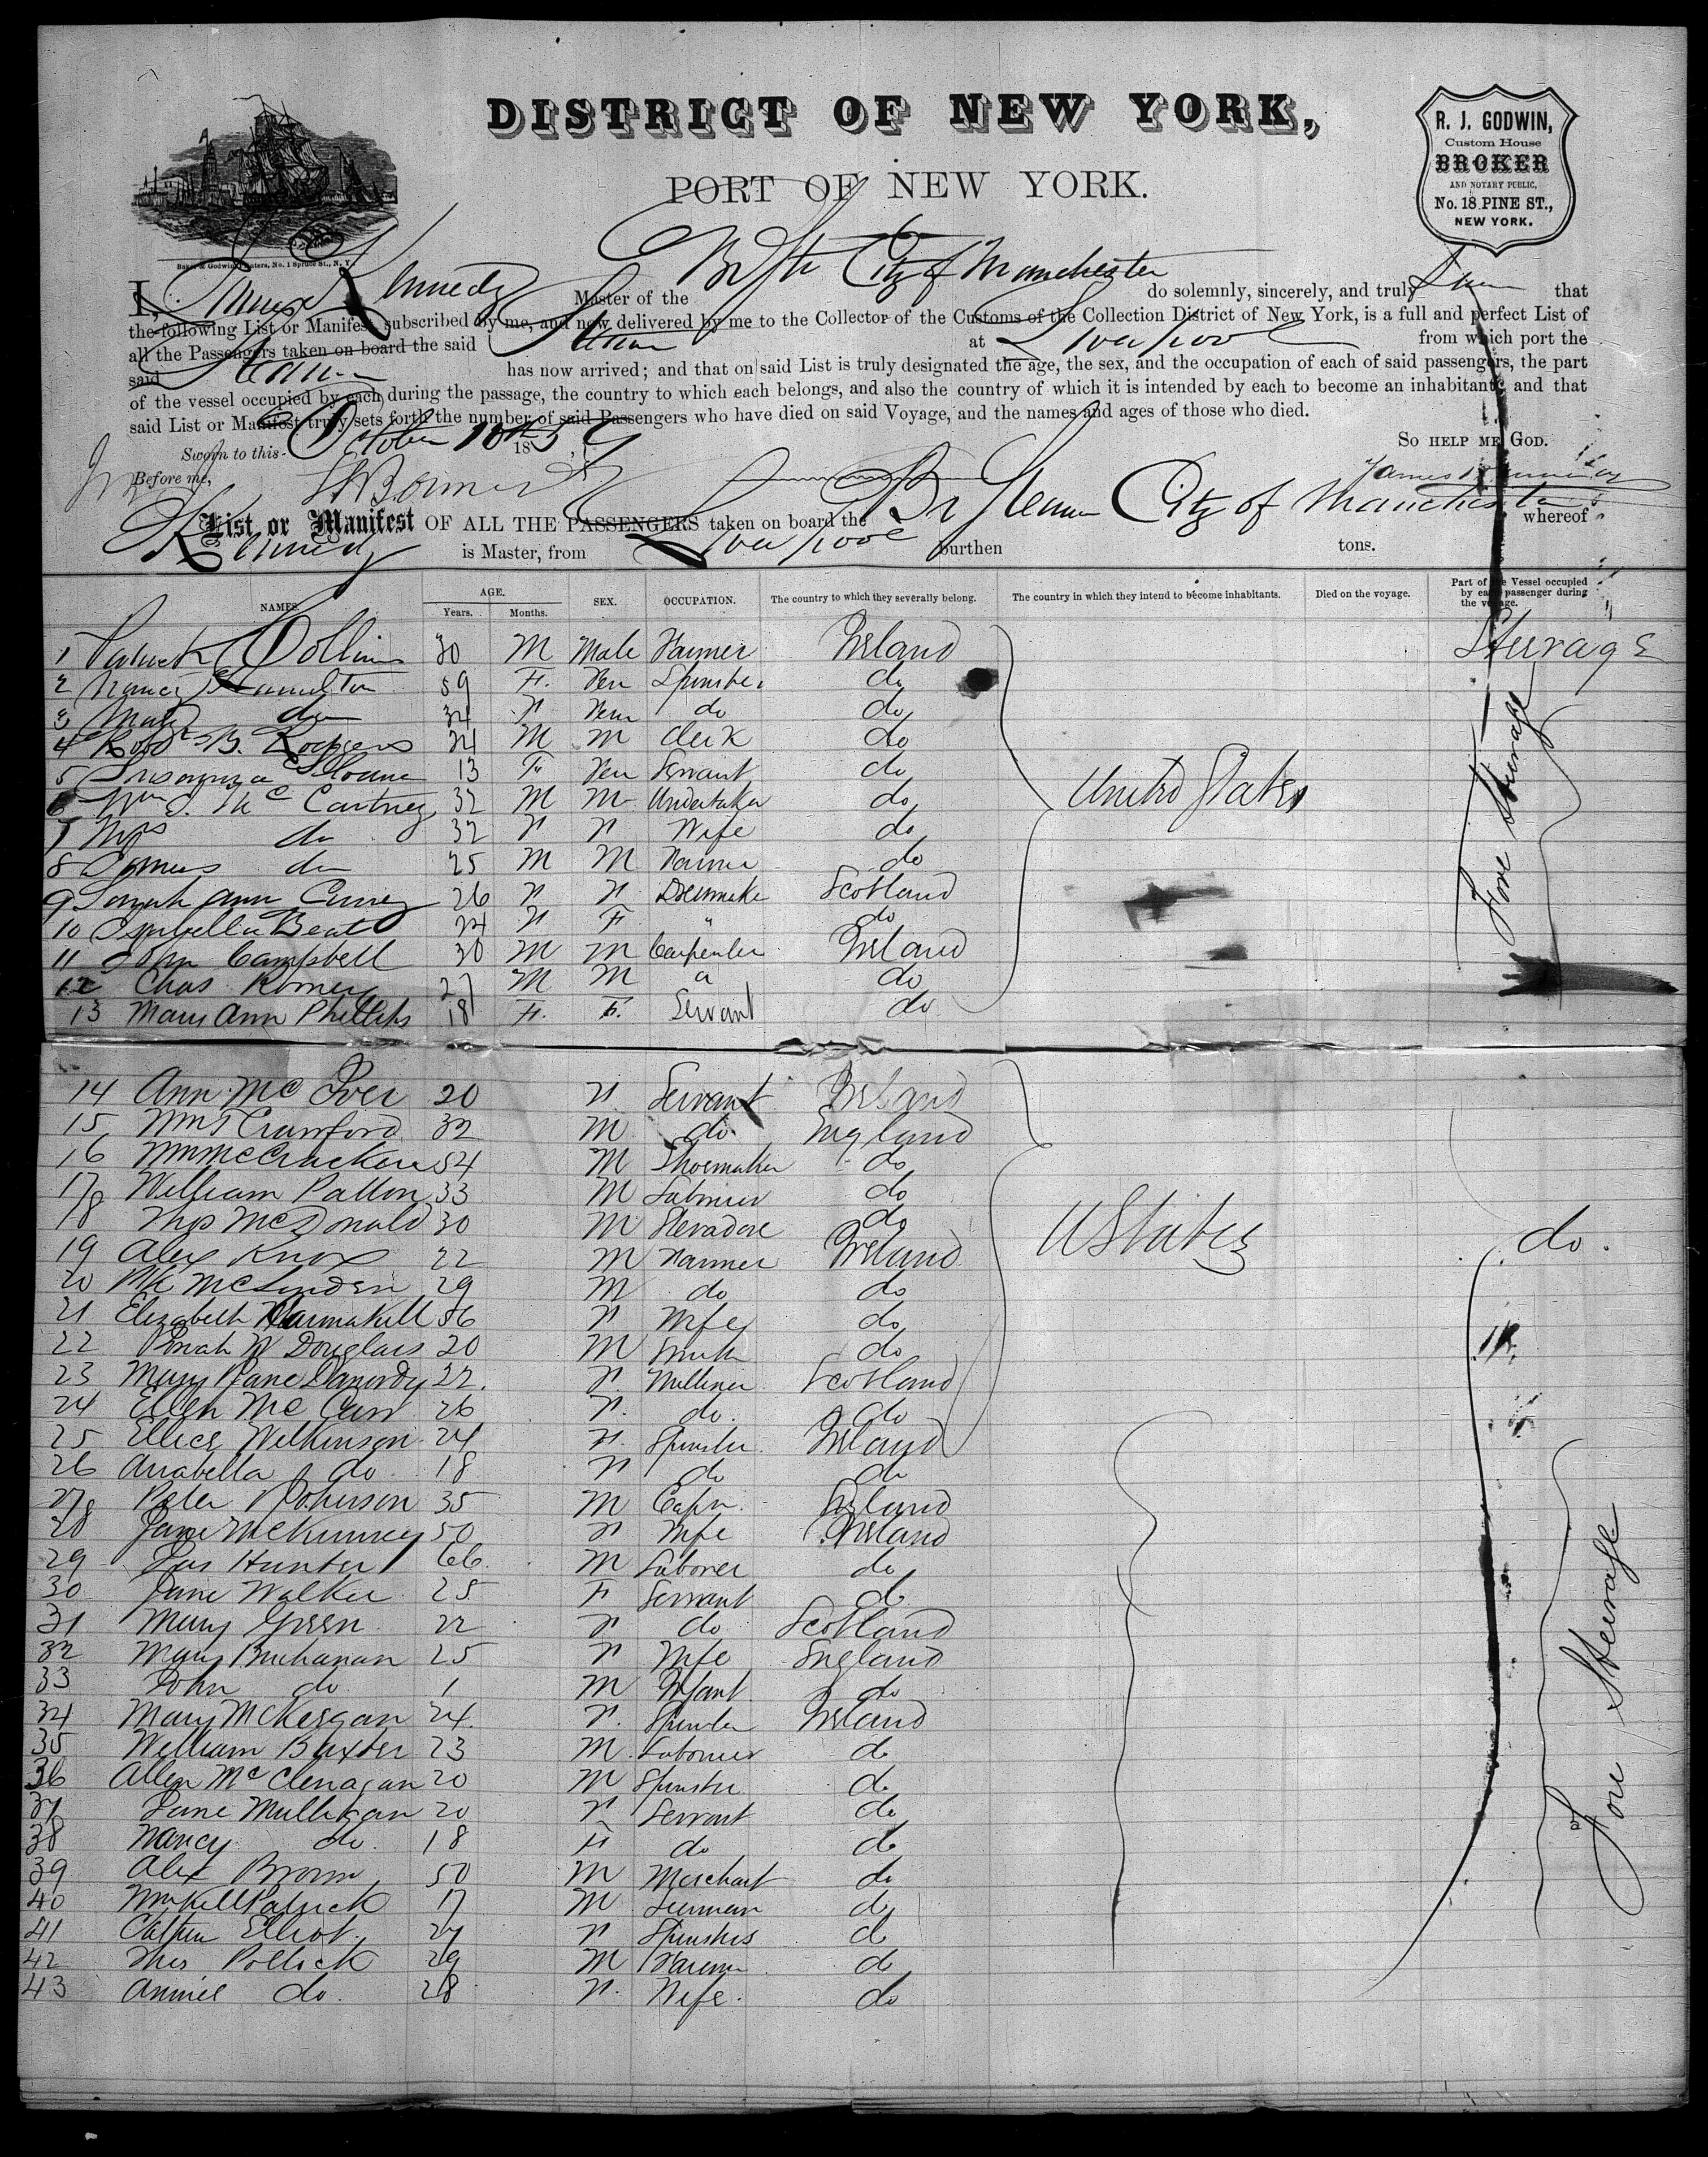 DISTRICT OF NEW YORK,
PORT OF NEW YORK.
R. J. GODWIN,
Custom House
BROKER
AND NOTARY PUBLIC,
No. 18 PINE ST.,
NEW YORK.
Baker & Godwin, Printers, No. 1 Spruce St., N. Y.
I, James Kennedy Master of the Br Str City of Manchester do solemnly, sincerely, and truly swear that
the following List or Manifest, subscribed by me, and now delivered by me to the Collector of the Customs of the Collection District of New York, is a full and perfect List of
all the Passengers taken on board the said Steamer at Liverpool from which port the
said Steamer has now arrived; and that on said List is truly designated the age, the sex, and the occupation of each of said passengers, the part
of the vessel occupied by each during the passage, the country to which each belongs, and also the country of which it is intended by each to become an inhabitant; and that
said List or Manifest truly sets forth the number of said Passengers who have died on said Voyage, and the names and ages of those who died.
So HELP ME GOD.
Sworn to this October 10th 1859
Before me, James Kennedy
List or Manifest OF ALL THE PASSENGERS taken on board the Br Steamer City of Manchester whereof
Kennedy is Master, from Liverpool burthen tons.
NAMES. AGE. Years. Months. SEX. OCCUPATION. The country to which they severally belong. The country in which they intend to become inhabitants. Died on the voyage. Part of the Vessel occupied by each passenger during the voyage.
1 Patrick Collins 30 M Male Farmer Ireland Steerage
2 Nancy Hamilton 59 F. Fem Spinster do
3 Mary do 34 F Fem do do
4 Robt B. Rodgers 24 M M Clerk do
5 Susanna Sloane 13 F Fem Servant do
6 Wm J. McCartney 32 M M Undertaker do United States
7 Mrs do 32 F F Wife do
8 James do 25 M M Farmer do
9 Sarah Ann 26 F F Dressmaker Scotland
10 Isabella Beat 24 F F " do
11 John Campbell 30 M M Carpenter Ireland
12 Chas 27 M M " do
13 Mary Ann Phillips 18 F. F. Servant do
Fore Steerage
14 Ann McIver 20 F Servant Ireland
15 Wm Crawford 32 M do England
16 Wm McCracken 54 M Shoemaker do
17 William Patton 33 M Labourer do
18 McDonald 30 M Stevadore do U States do.
19 Alex Knox 22 M Farmer Ireland
20 29 M do do
21 Elizabeth 56 F Wife do
22 W Douglass 20 M Smith do
23 Mary Jane 22. F. Milliner Scotland
24 Ellen McCann 26 F. do. do
25 Wilkinson 24 F. Spinster Ireland
26 Anabella do 18 F do do
27 Peter Robinson 35 M
28 Jane McKinney 50 F Wife Ireland
29 Jas Hunter 66 M Laborer do
30 Jane Walker 25 F Servant do
31 Mary Green 22 F do Scotland
32 Mary Buchanan 25 F Wife England
33 John do 1 M Infant do
34 Mary McKeegan 24. F. Spinster Ireland
35 William Baxter 23 M. Labourer do
36 Allen McClenagan 20 M Spinster do
37 Jane Mulligan 20 F Servant do
38 Nancy do. 18 F do do
39 Alex Brown 50 M Merchant do
40 Wm KillPatrick 17 M do
41 Elliot 24 F Spinster do
42 Thos Pollock 29 M Farmer do
43 Annie do. 28 F. Wife. do
Fore Steerage